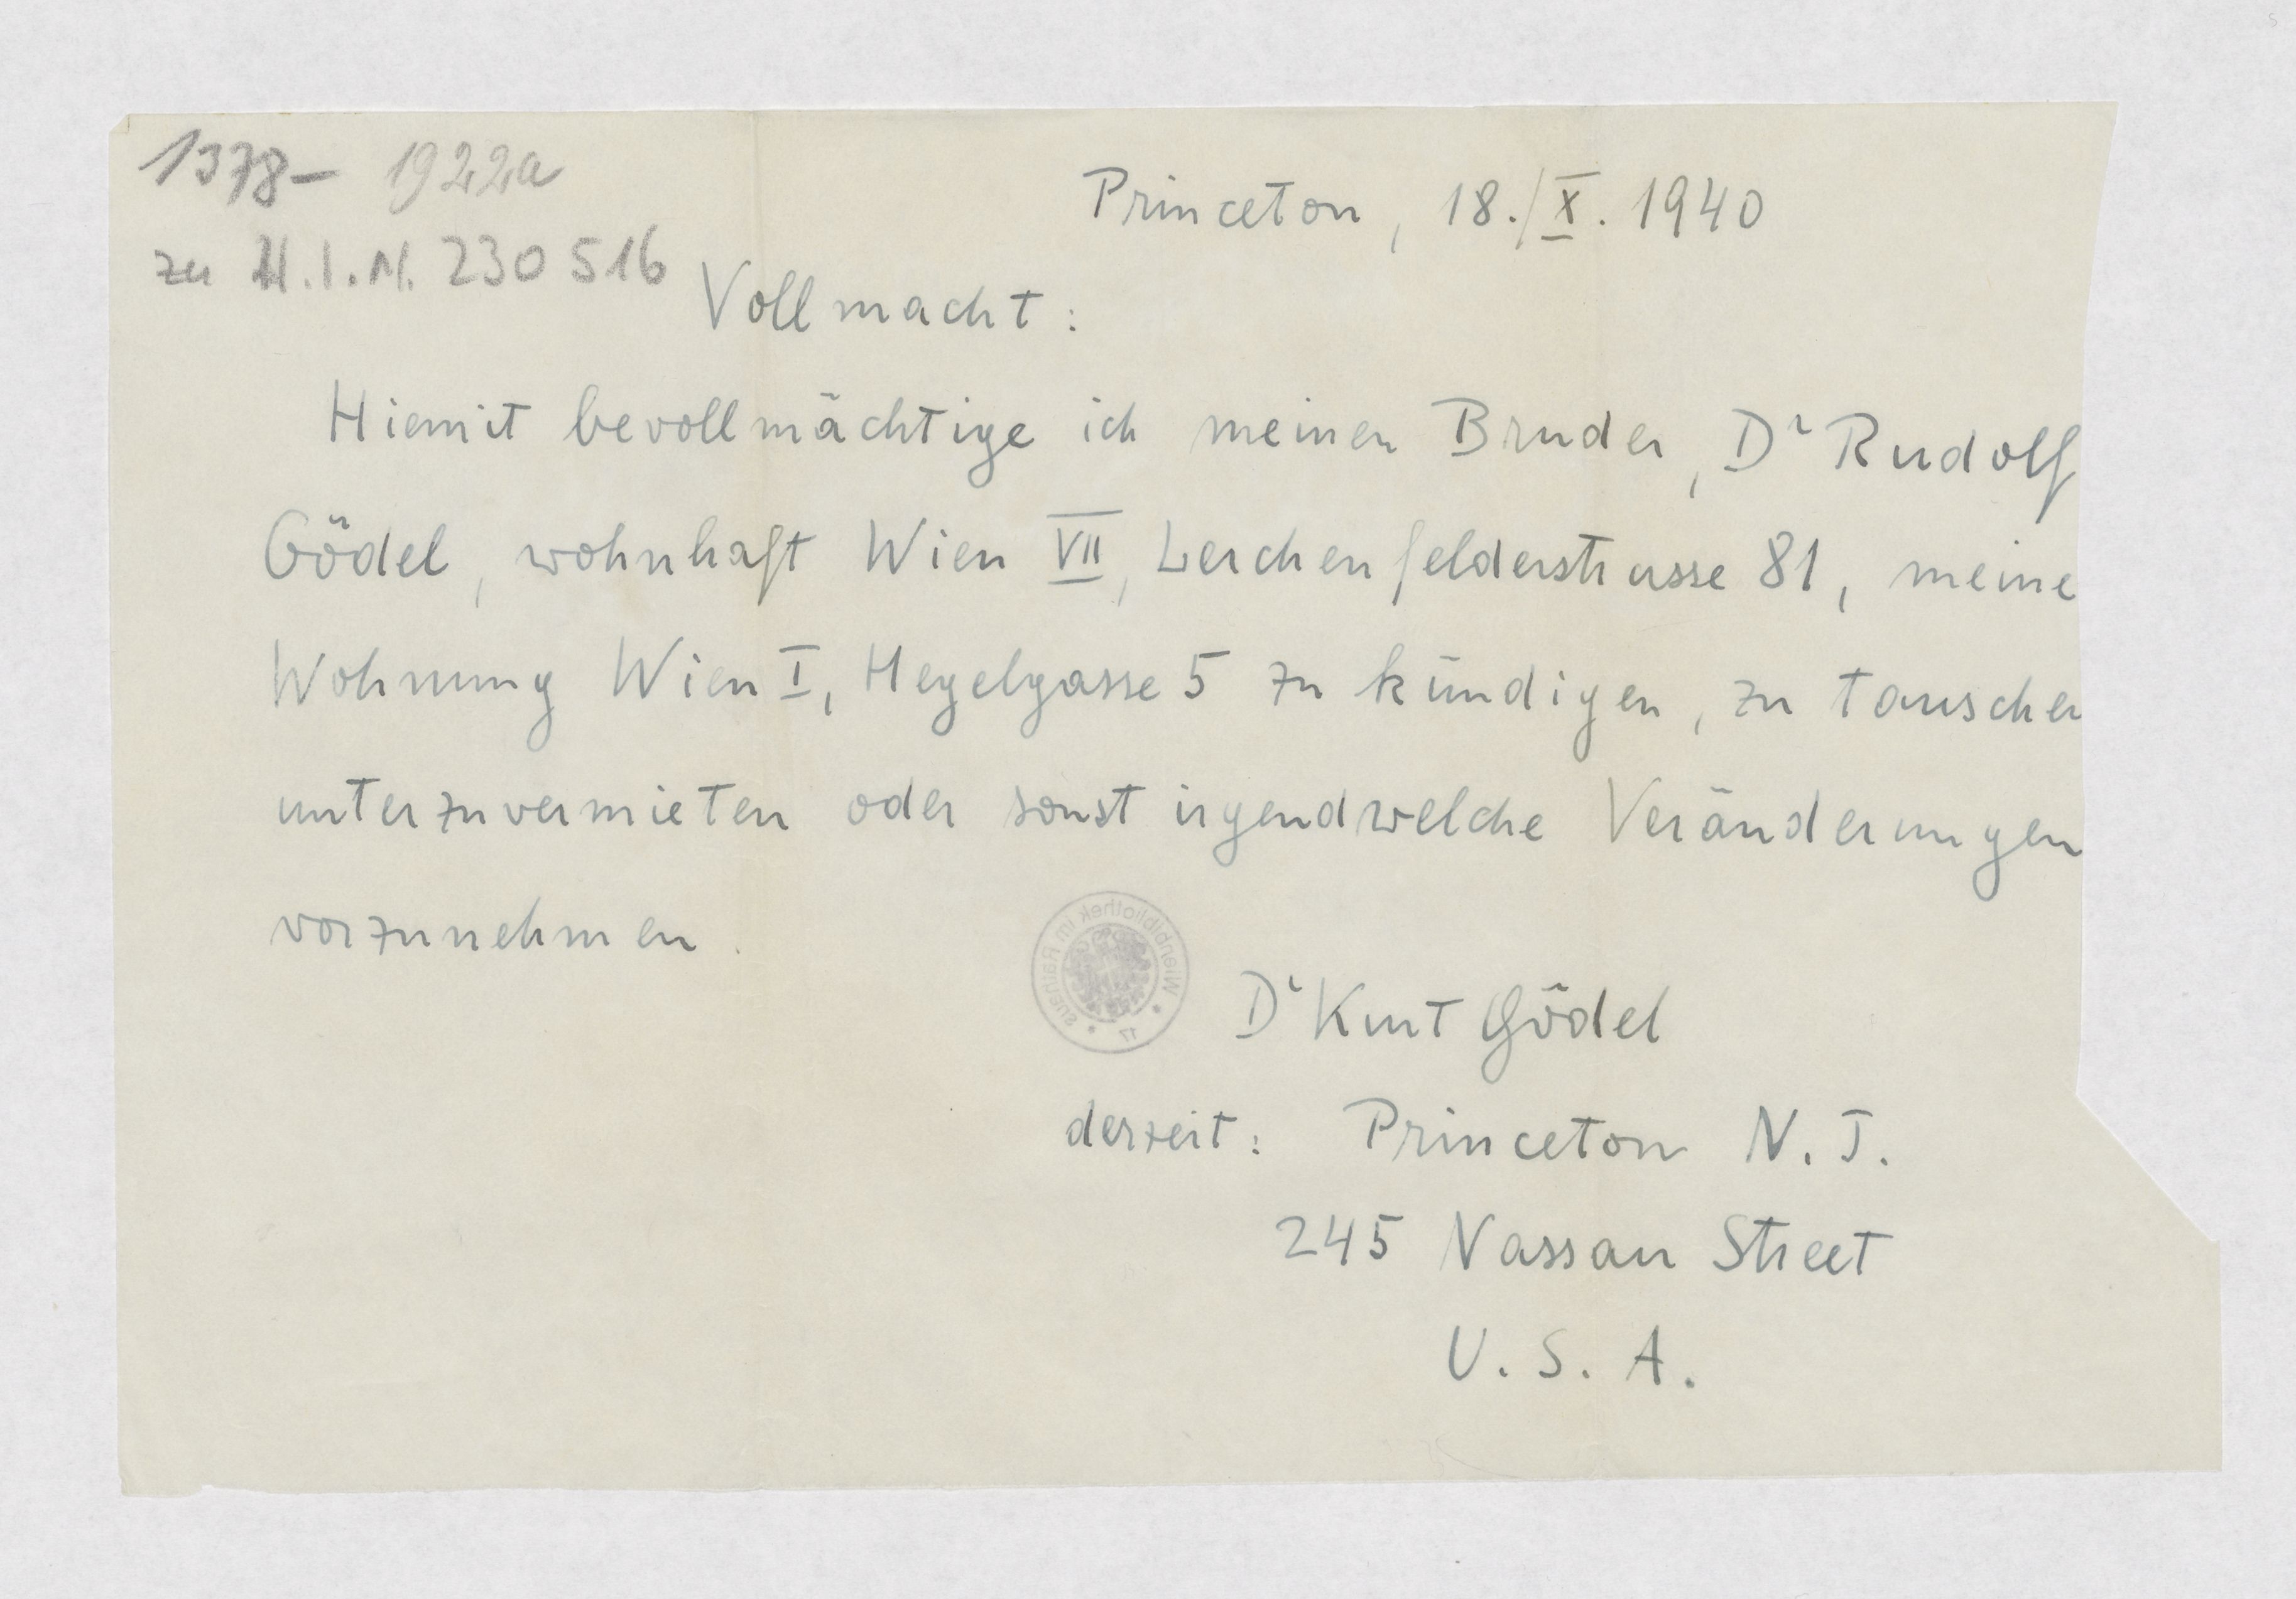 1378- 1922a
zu H.I.N. 230 516
Princeton, 18./X. 1940
Vollmacht:
Hiemit bevollmächtige ich meinen Bruder, Dr Rudolf
Gödel, wohnhaft Wien VII, Lerchenfelderstrasse 81, meine
Wohnung Wien I, Hegelgasse 5 zu kündigen, zu tauschen
unterzuvermieten oder sonst irgendwelche Veränderungen
vorzunehmen.
Wienbibliothek im Rathaus
17
Dr Kurt Gödel
derzeit: Princeton N.J.
245 Nassau Street
U.S.A.